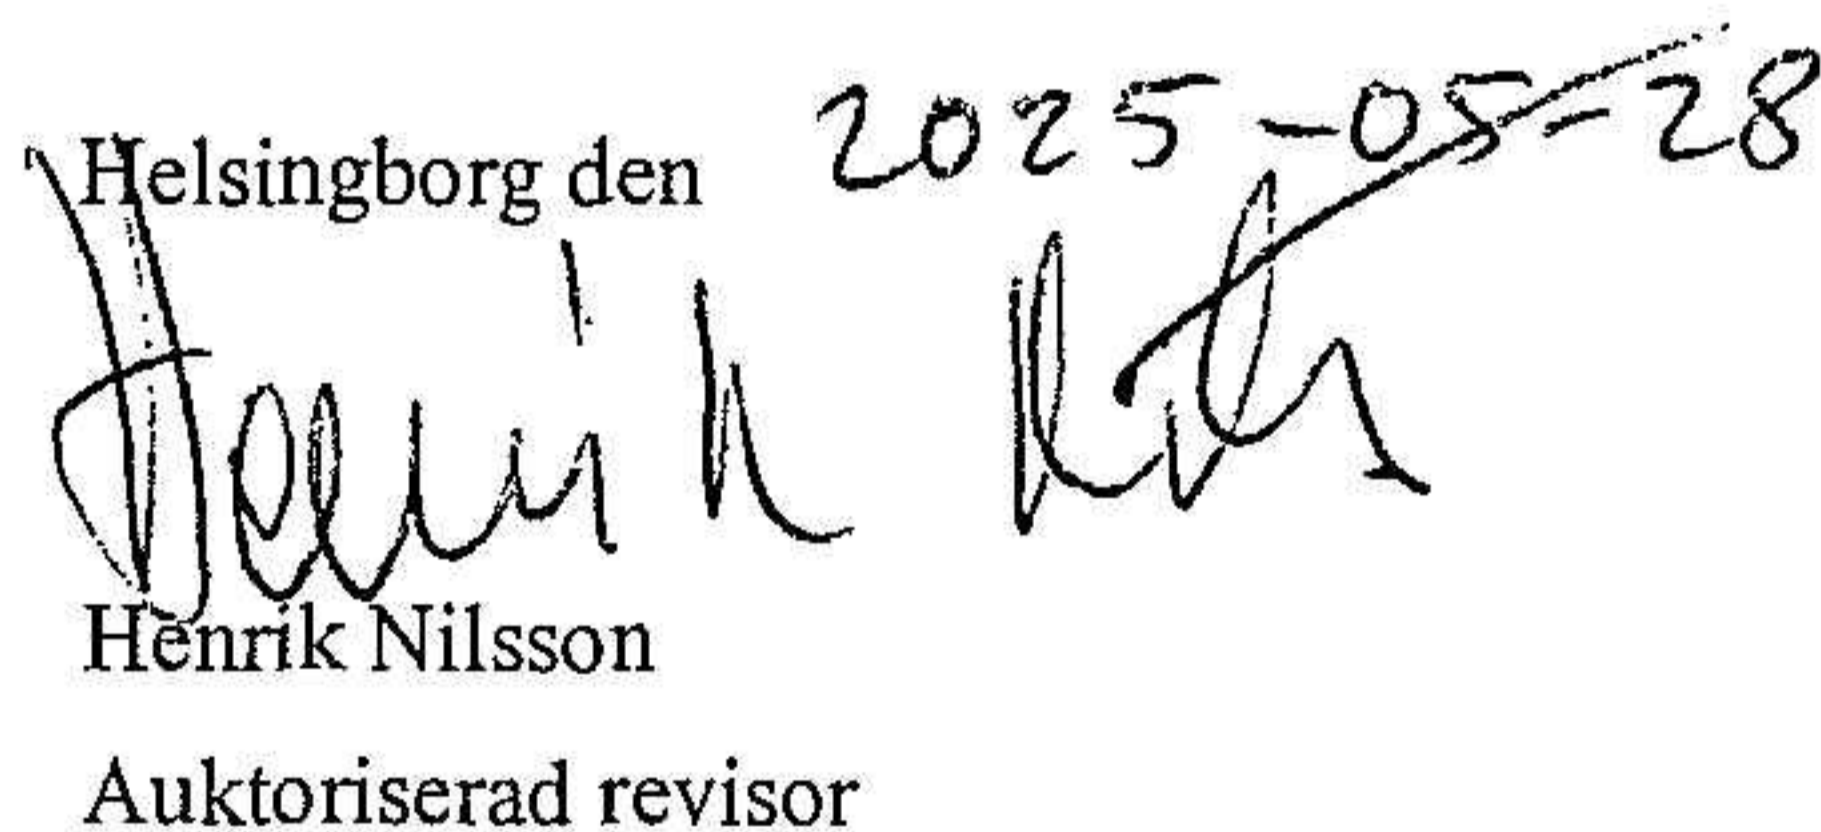 Helsingborg den 2025-05-28
Henrik Nilsson
Auktoriserad revisor